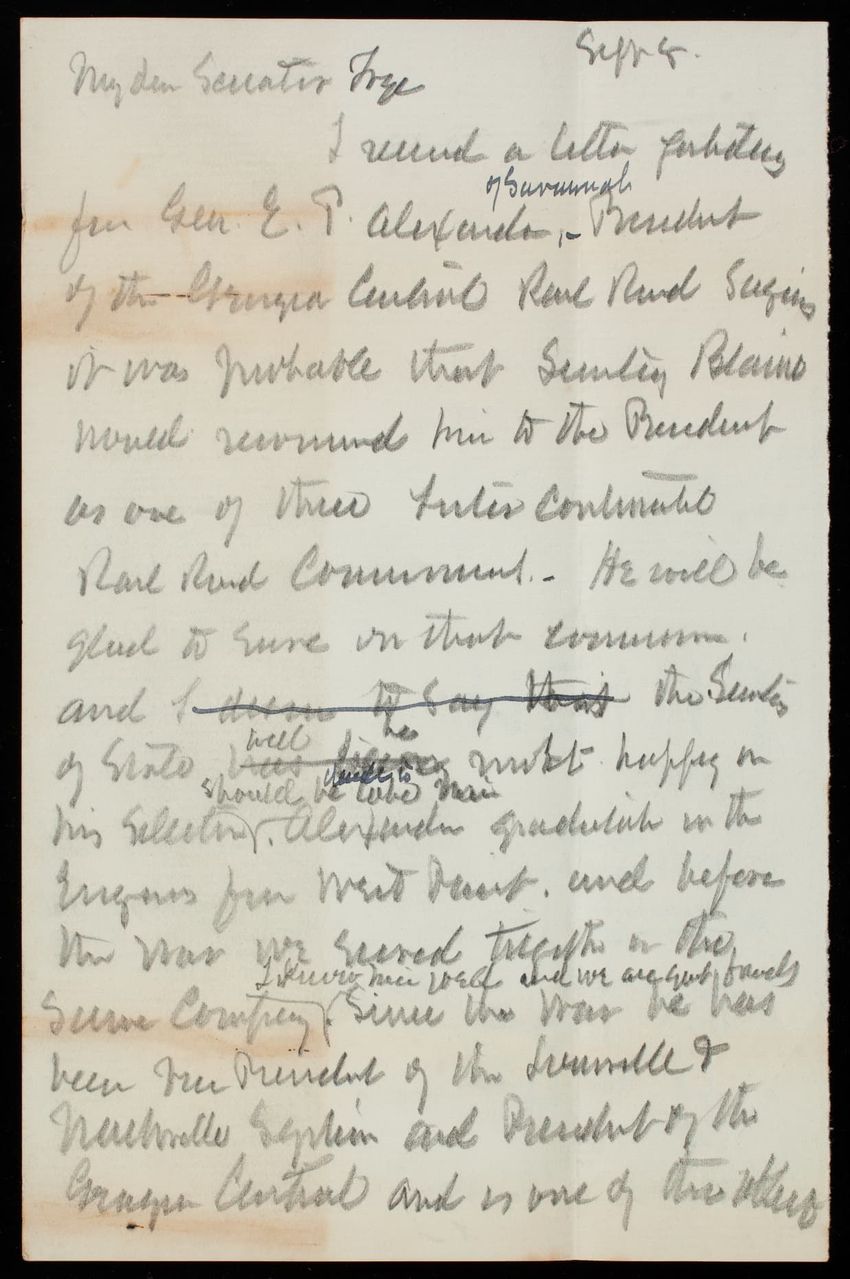 Sept 8.
My dear Senator Frye
I received a letter yesterday
of Savannah
from Gen. E. P. Alexander, - President
of the Georgia Central Rail Road Saying
it was probable that Secretary Blaine
would recommend him to the President
as one of three Inter Continental
Rail Road Commission. - He will be
glad to serve on that commission.
and I desire to say that the Secretary
will be
of State has been most happy in
should be
his selection. Alexander graduated in the
Engineers from West Point. and before
the War we served together in the
I know him well and we are great friends
Same Company. Since the War he has
been Vice President of the Louisville &
Nashville System and President of the
Georgia Central and is one of the